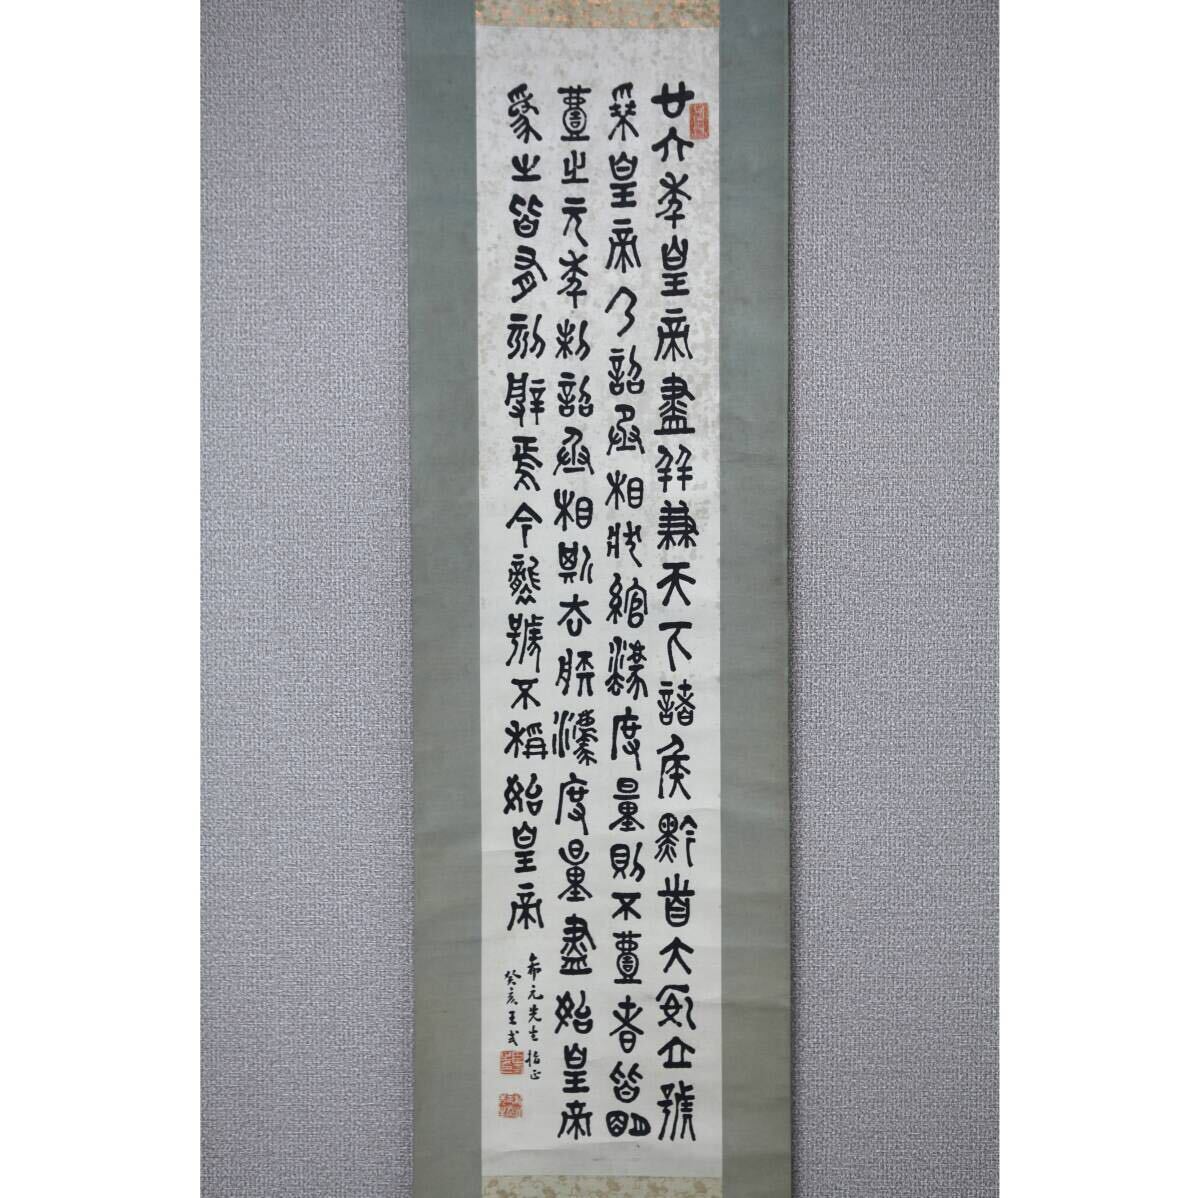 廿六年皇帝盡并兼天下諸矦黔首大安立號
為皇帝乃詔丞相狀綰灋度量則不壹者皆明
壹之元年制詔丞相斯去疾灋度量盡始皇帝
為之皆有刻辭焉今襲號不稱始皇帝
希元先生指正
癸亥王